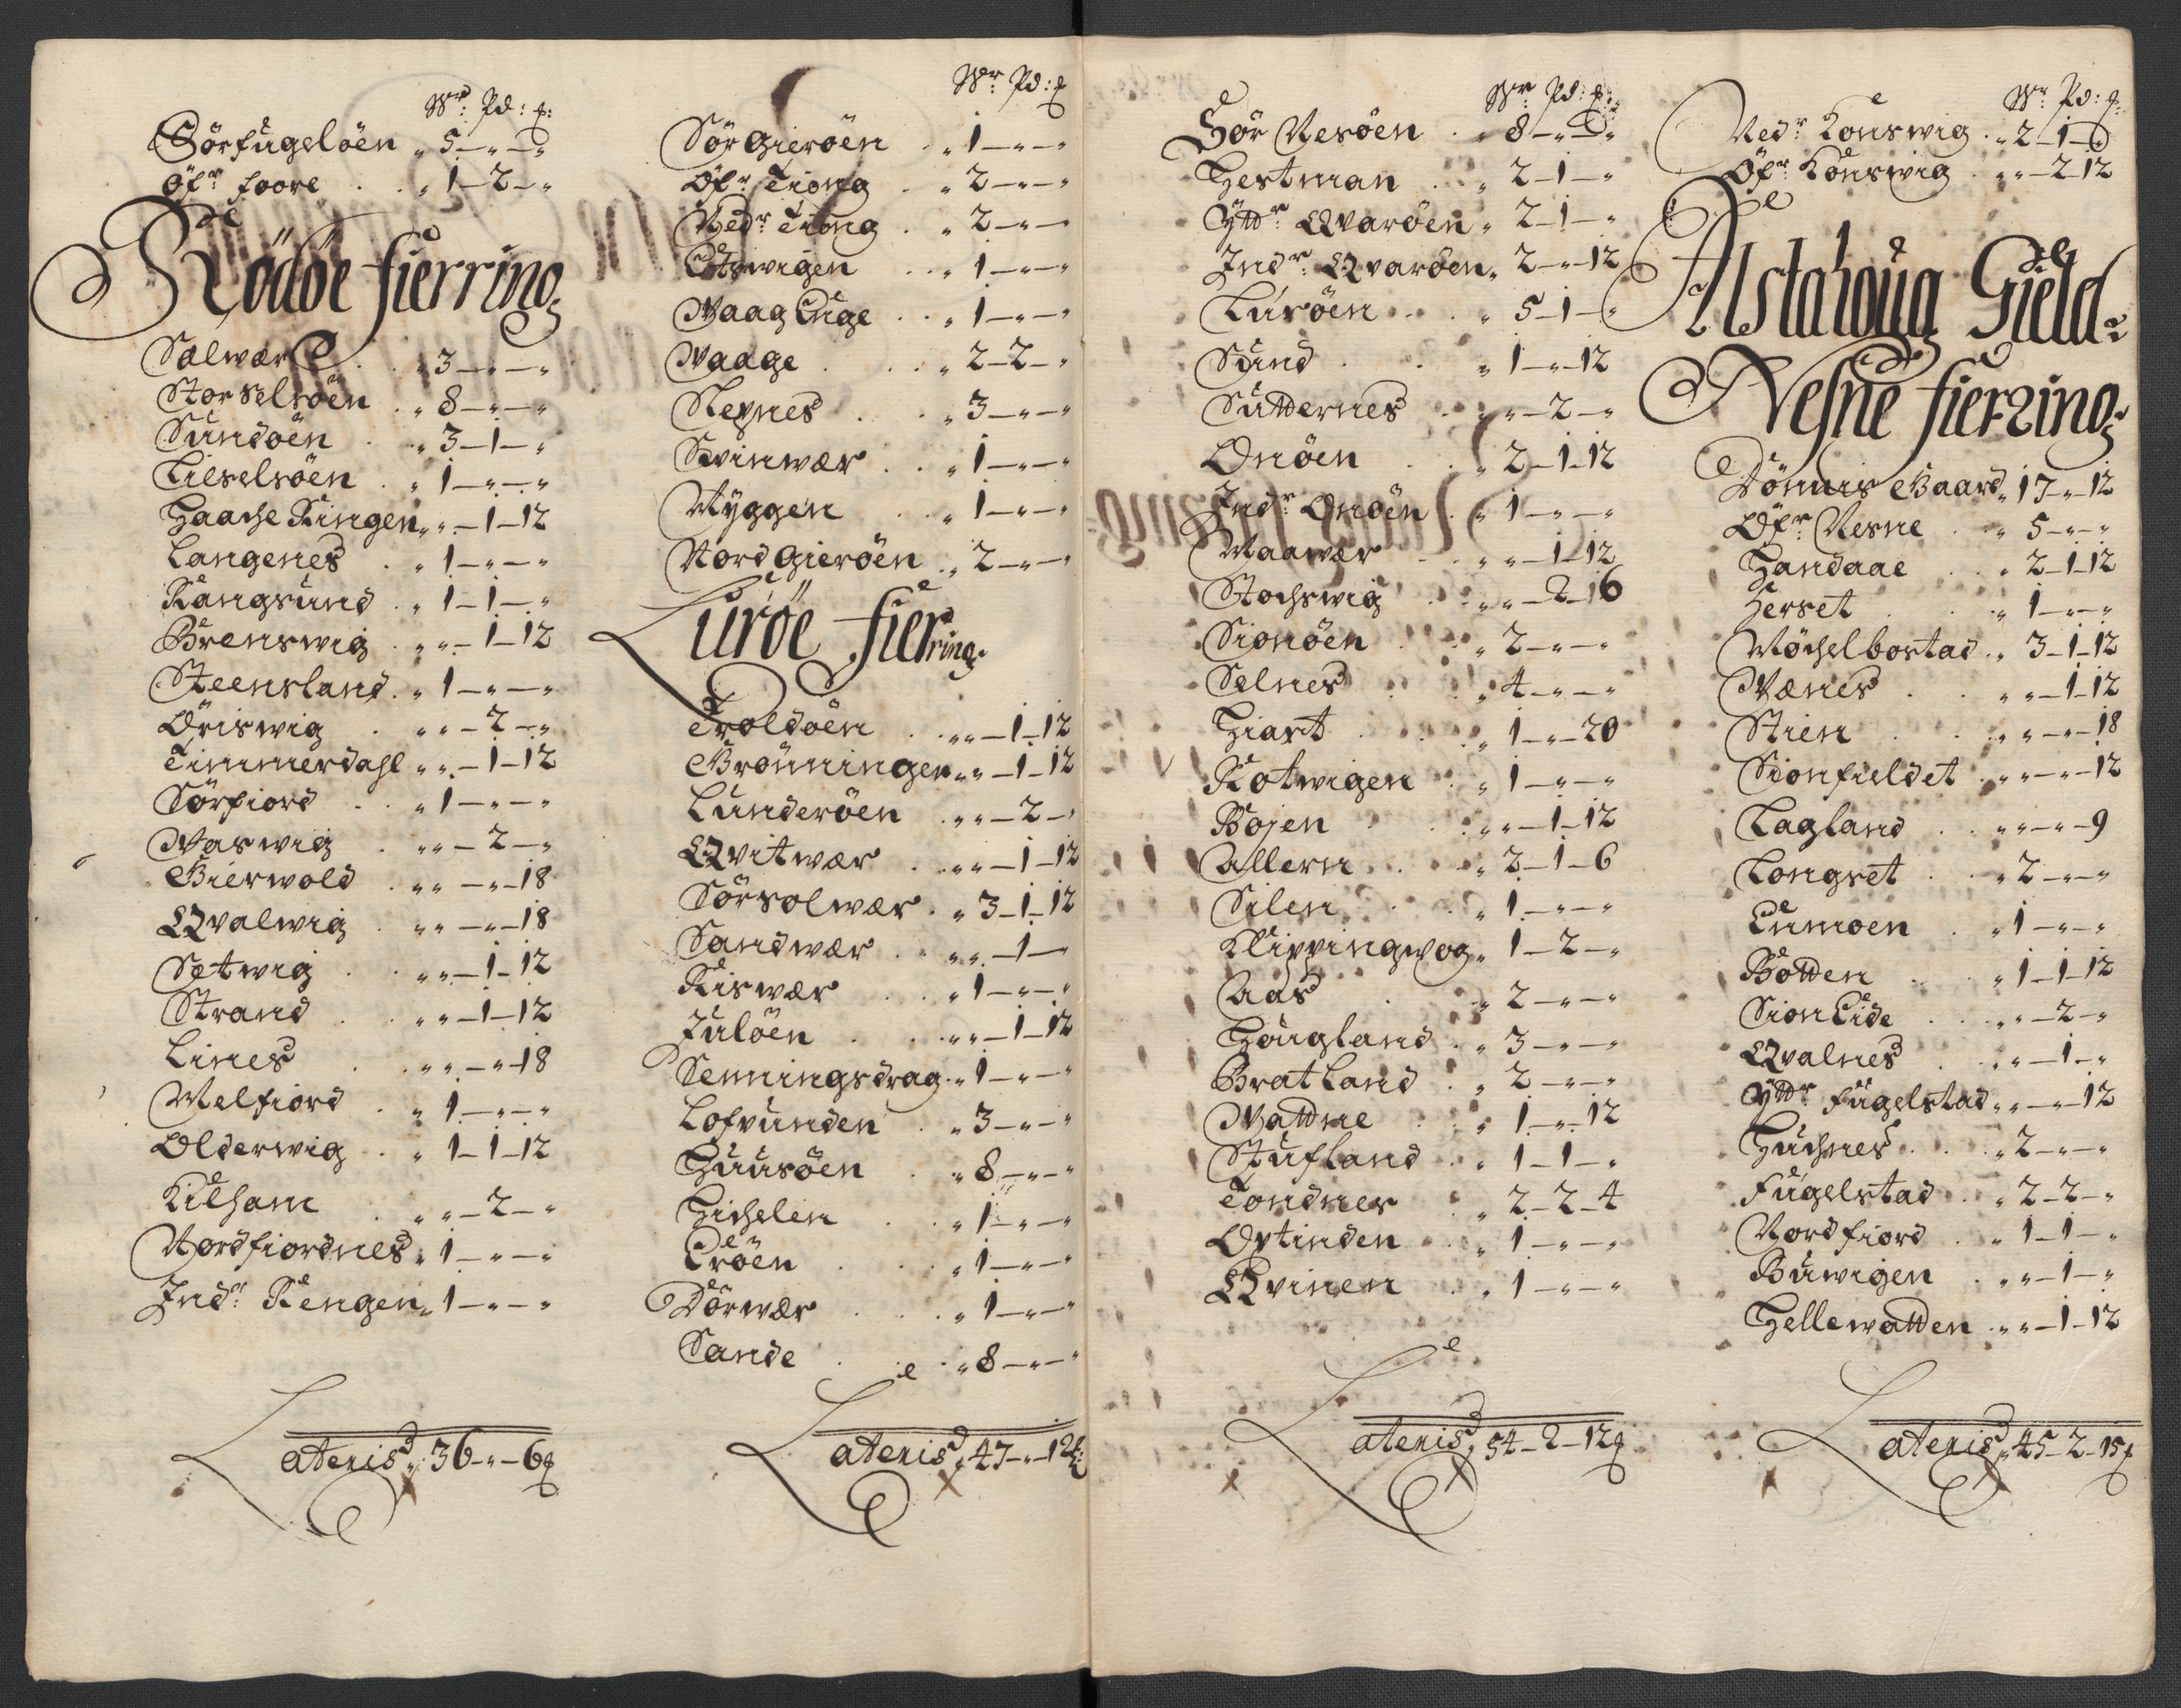 Wr: Pd: :
Sörfugelöen „ 5 — „ — „
Öfr foore . . „ 1 — 2 — „
Rödöe fierring
Sælwær . „ 3 — „ — „
Storselsöen . „ 8 — „ — „
Sundöen . „ 3 — 1 — „
Lilselsöen . „ 1 — „ — „
Haache Ringen „ „ — 1 — 12
Langenes . „ 1 — „ — „
Rangsund . „ 1 — 1 — „
Brenswig . „ „ — 1 — 12
Steensland . „ 1 — „ — „
Öriswig . „ „ — 2 — „
Timmerdahl „ „ — 1 — 12
Sörfiord . „ 1 — „ — „
Waswig . „ „ — 2 — „
Bierwold . „ „ — „ — 18
Qvalwig . „ „ — „ — 18
Setwig . „ „ — 1 — 12
Strand . „ „ — 1 — 12
Lines . „ „ — „ — 18
Melfiord . „ 1 — „ — „
Olderwig . „ 1 — 1 — 12
Kilham . „ „ — 2 — „
Nordfiordnes „ 1 — „ — „
Indr: Rengen „ 1 — „ — „
Lateris „ 36 — „ — 6
Wr: Pd:
Sör Gieröen . „ 1 — „ — „
Öfr Tiong . „ 2 — „ — „
Nedr Tiong . „ 2 — „ — „
Otswigen . „ 1 — „ — „
Waag Luge . „ 1 — „ — „
Waage . „ 2 — 2 — „
Selsnes . „ 3 — „ — „
Svinwær . „ 1 — „ — „
Myggen . „ 1 — „ — „
Nord Gieröen . „ 2 — „ — „
Luröe fierring
Troldöen . „ „ — 1 — 12
Brönningen „ „ — 1 — 12
Lunderöen . „ „ — 2 — „
Qvitwær . „ „ — 1 — 12
Sörsolwær . „ 3 — 1 — 12
Sandwær . „ „ — 1 —
Riswær . „ 1 — „ — „
Julöen . „ „ — 1 — 12
Senningsdrag . „ 1 — „ — „
Lofvunden . „ 3 — „ — „
Huusöen . „ 8 — „ — „
Hichelen . „ 1 — „ — „
Eröen . „ 1 — „ — „
Dörwær . „ 1 — „ — „
Sande . „ 8 — „ — „
Lateris „ 47 — „ — 12
Wr Pd: :
Sör Nesöen . „ 8 — „ — „
Hestman . „ 2 — 1 — „
Yttr Qvaröen „ 2 — 1 — „
Indr: Qvaröen „ 2 — „ — 12
Luröen . „ 5 — 1 — „
Sund . „ 1 — „ — 12
Sutternes . „ „ — 2 — „
Onöen . „ 2 — 1 — 12
Indr Onöen . „ 1 — „ — „
Maawær . „ „ — 1 — 12
Stochswig . „ „ — 2 — 16
Sionöen . „ 2 — „ — „
Selnes . „ 4 — „ — „
Hiart . „ 1 — „ — 20
Kotwigen . „ 1 — „ — „
Bojen . „ „ — 1 — 12
Allern . „ 2 — 1 — 6
Silen . „ 1 — „ — „
Klippingwog „ 1 — 2 — „
Aas . „ 2 — „ — „
Hougland . „ 3 — „ — „
Bratland . „ 2 — „ — „
Wattne . „ 1 — „ — 12
Stufland . „ 1 — 1 — „
Tondnes „ 2 — 2 — 4
Ovtinden . „ 1 — „ — „
Qvinen . „ 1 — „ — „
Lateris „ 54 — 2 — 12
Wr: Pd: :
Nedr: Konswig . „ 2 — 1 — „
Öfr Konswig . „ „ — 2 — 12
Alstahoug Gield
Nesne fierring
Dönnis Gaard „ 17 — „ — 12
Öfr Nesne . „ 5 — „ — „
Handaae . „ 2 — 1 — 12
Herset . „ 1 — „ — „
Möchelbostad . „ 3 — 1 — 12
Wænes . „ „ — 1 — 12
Stien . „ „ — „ — 18
Sionfieldet . „ „ — „ — 12
Lagland . „ „ — „ — 9
Longset . „ 2 — „ — „
Lumoen . „ 1 — „ — „
Botten . „ 1 — 1 — 12
Sion Eide . „ „ — 2 — „
Qvalnes . „ „ — 1 — „
Yttr fugelstad „ „ — „ — 12
Huchnes . „ 2 — „ — „
Fugelstad . „ 2 — 2 — „
Nordfiord . „ 1 — 1 — „
Buwigen . „ „ — 1 — „
Hellewatten . „ „ — 1 — 12
Lateris „ 45 — 2 — 15